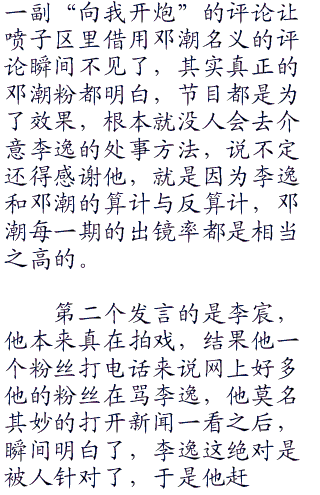 一副“向我开炮”的评论让
喷子区里借用邓潮名义的评
论瞬间不见了，其实真正的
邓潮粉都明白，节目都是为
了效果，根本就没人会去介
意李逸的处事方法，说不定
还得感谢他，就是因为李逸
和邓潮的算计与反算计，邓
潮每一期的出镜率都是相当
之高的。
第二个发言的是李宸，
他本来真在拍戏，结果他一
个粉丝打电话来说网上好多
他的粉丝在骂李逸，他莫名
其妙的打开新闻一看之后，
瞬间明白了，李逸这绝对是
被人针对了，于是他赶